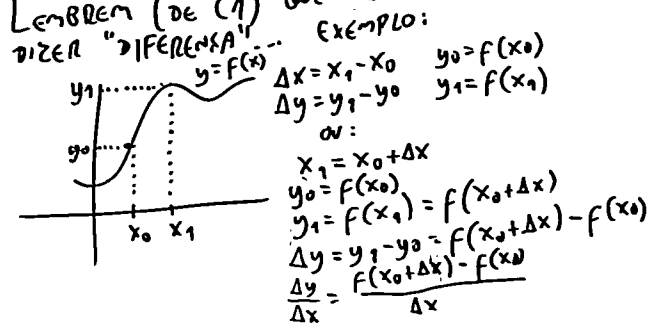 LEMBREM (DE C1)
DIZER "DIFERENSA"...
EXEMPLO:
y=f(x)
y1
y0
x0 x1
Δx = x1 - x0 y0=f(x0)
Δy = y1 - y0 y1=f(x1)
OU:
x1 = x0+Δx
y0=f(x0)
y1=f(x1) = f(x0+Δx)
Δy = y1-y0 = f(x0+Δx) - f(x0)
Δy/Δx = (f(x0+Δx) - f(x0))/Δx